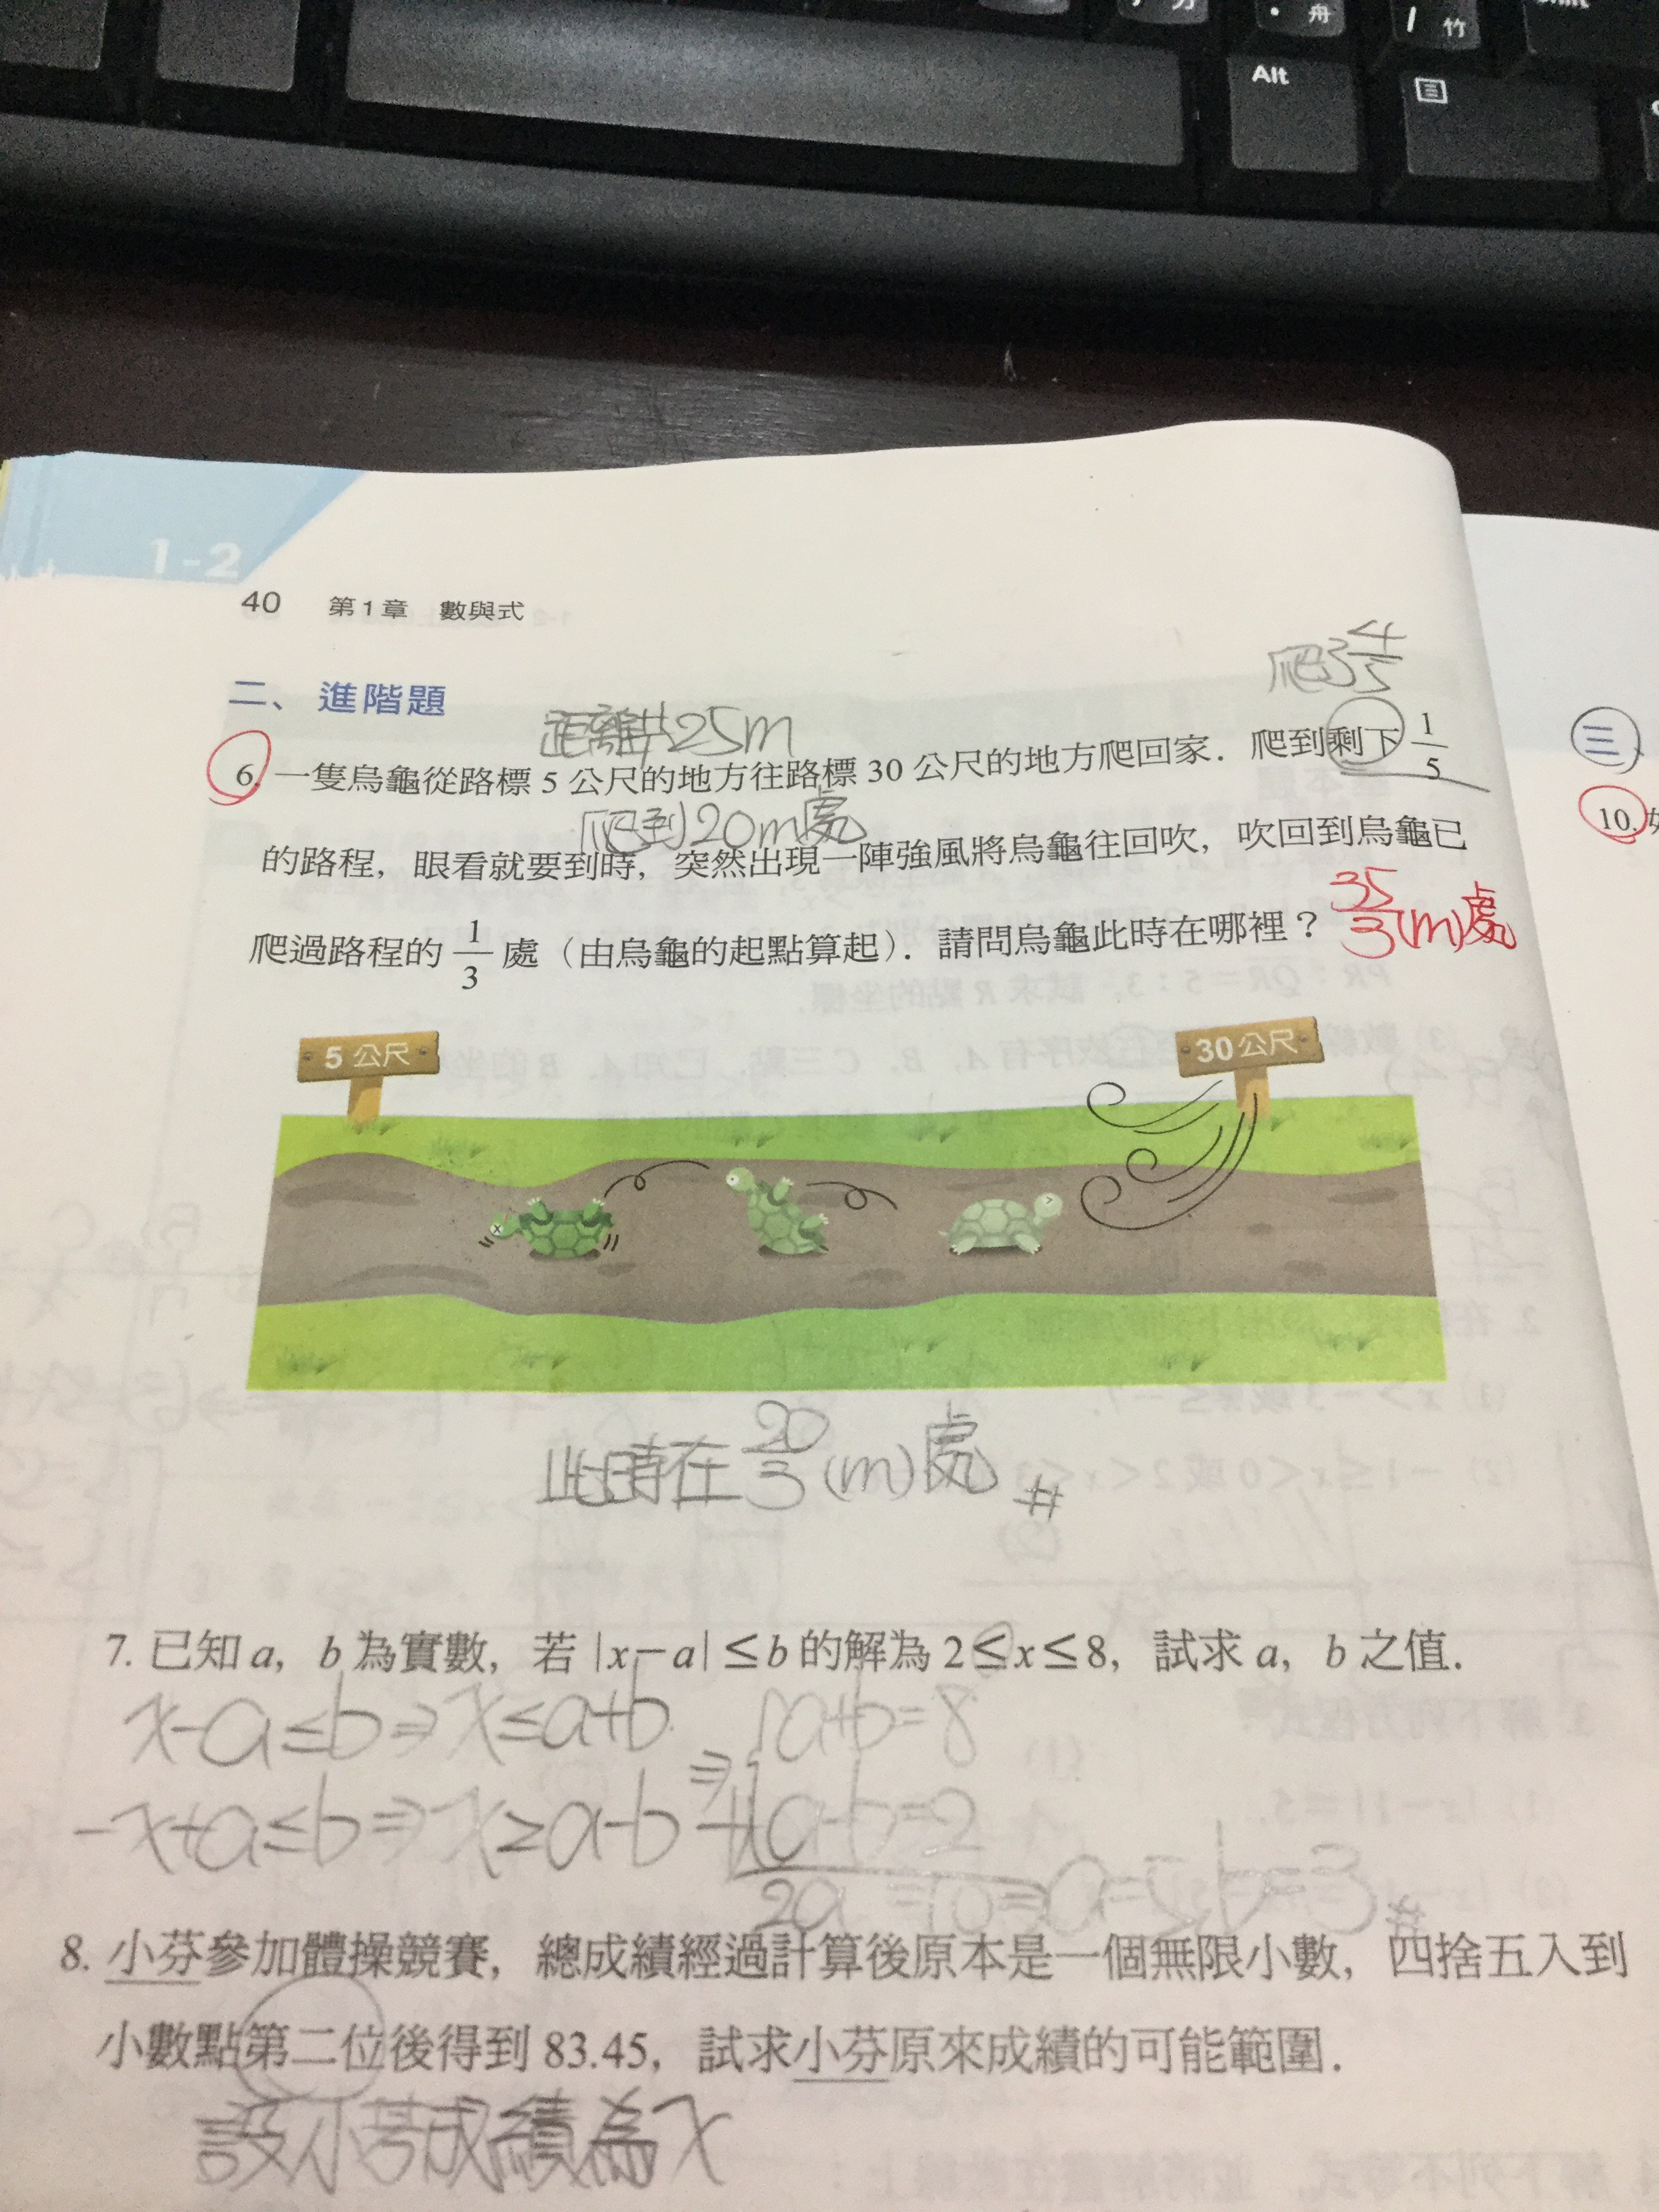 力
舟
竹
Alt
1-2
40 第1章 數與式
二、進階題
爬3 4/5
距離共25m
6. 一隻烏龜從路標 5 公尺的地方往路標 30 公尺的地方爬回家. 爬到剩下 1/5
爬到20m處
的路程, 眼看就要到時, 突然出現一陣強風將烏龜往回吹, 吹回到烏龜已
爬過路程的 1/3 處 (由烏龜的起點算起). 請問烏龜此時在哪裡?
35/3(m)處
三
10.
5公尺
30公尺
此時在 20/3 (m)處 #
7. 已知 a, b 為實數, 若 |x-a|≤b 的解為 2≤x≤8, 試求 a, b 之值.
x-a≤b⇒x≤a+b
⇒ a+b=8
-x+a≤b⇒x≥a-b
+) a-b=2
2a=10⇒a=5 b=3 #
8. 小芬參加體操競賽, 總成績經過計算後原本是一個無限小數, 四捨五入到
小數點第二位後得到 83.45, 試求小芬原來成績的可能範圍.
設小芬成績為x